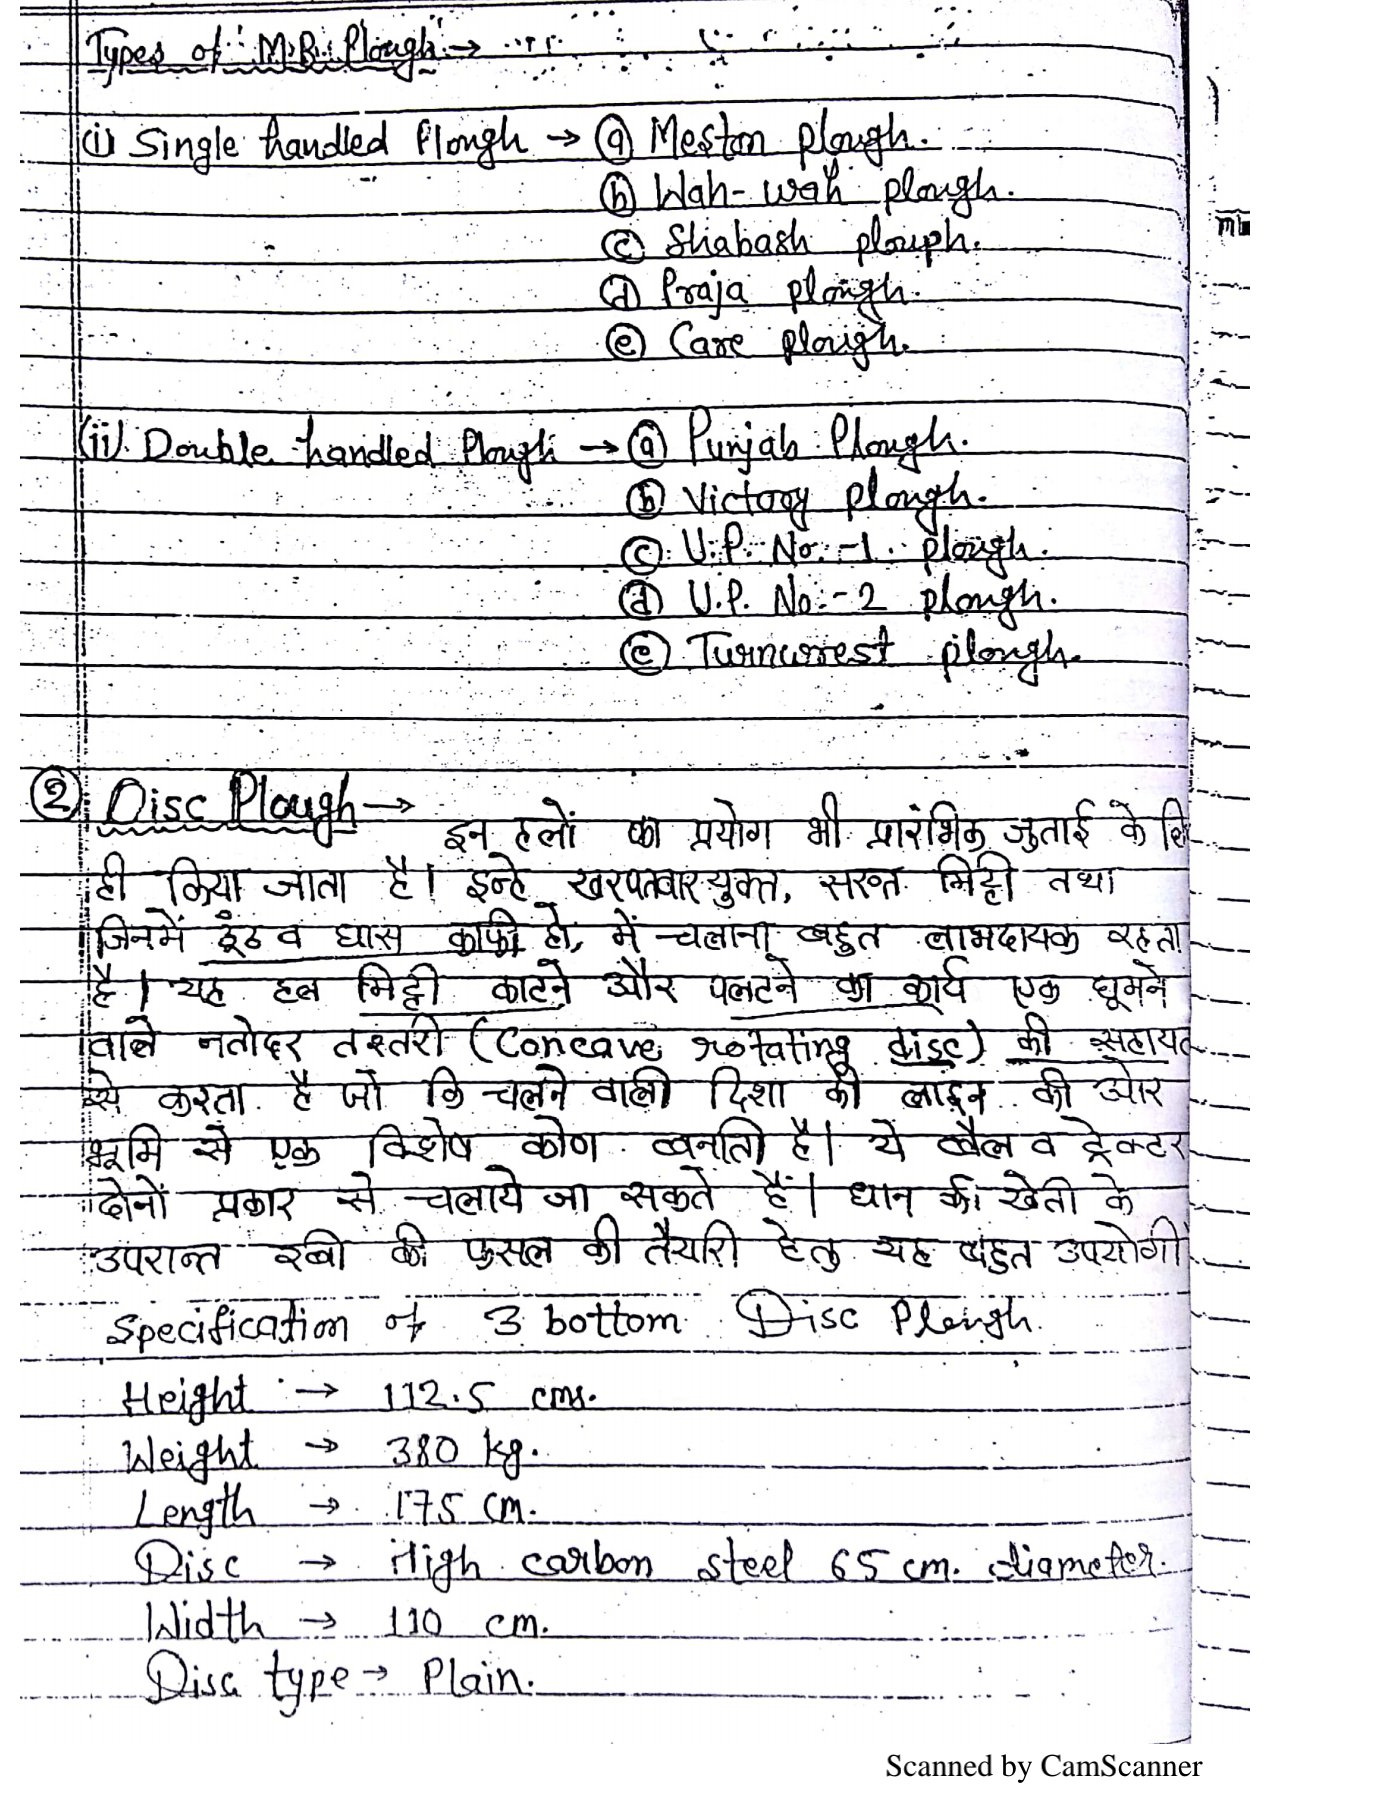 Types of M.B. Plough →
(i) Single handled Plough → (a) Meston plough.
(b) Wah-wah plough.
(c) Shabash plough.
(d) Praja plough.
(e) Care plough.
(ii) Double handled Plough → (a) Punjab Plough.
(b) Victory plough.
(c) U.P. No.-1 plough.
(d) U.P. No.-2 plough.
(e) Turnwrest plough.
(2) Disc Plough →
इन हलों का प्रयोग भी प्रारंभिक जुताई के लि
ही किया जाता है। इन्हे खरपतवार युक्त, सख्त मिट्टी तथा
जिनमें ठूंठ व घास काफी हो, में चलाना बहुत लाभदायक रहता
है। यह हल मिट्टी काटने और पलटने का कार्य एक घूमने
वाले नतोदर तस्तरी (Concave rotating disc) की सहायत
से करता है जो कि चलने वाली दिशा की लाइन की ओर
भूमि से एक विशेष कोण बनाती है। ये बैल व ट्रेक्टर
दोनों प्रकार से चलाये जा सकते हैं। धान की खेती के
उपरान्त रबी की फसल की तैयारी हेतु यह बहुत उपयोगी
Specification of 3 bottom Disc Plough.
Height → 112.5 cms.
Weight → 380 kg.
Length → 175 cm.
Disc → High carbon steel 65 cm. diameter.
Width → 110 cm.
Disc type → Plain.
Scanned by CamScanner